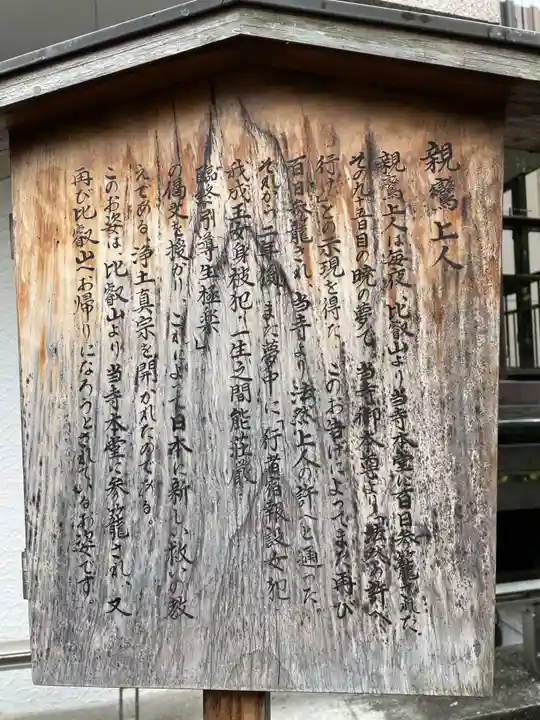 親鸞上人
親鸞上人は毎夜、比叡山より当寺本堂に百日参籠された。
その九十五日目の暁の夢で、当寺御本尊より「法然の許へ
行け」との示現を得た。このお告げによってまた再び
百日参籠され、当寺より法然上人の許へと通った。
それから二年間、また夢中に「行者宿報設女犯
我成玉女身被犯、一生之間能荘厳
臨終引導生極楽」
の偈文を授かり、これによって日本に新しい救いの教
えである、浄土真宗を開かれたのである。
このお姿は、比叡山より当寺本堂に参籠され、又
再び比叡山へお帰りになろうとされているお姿です。